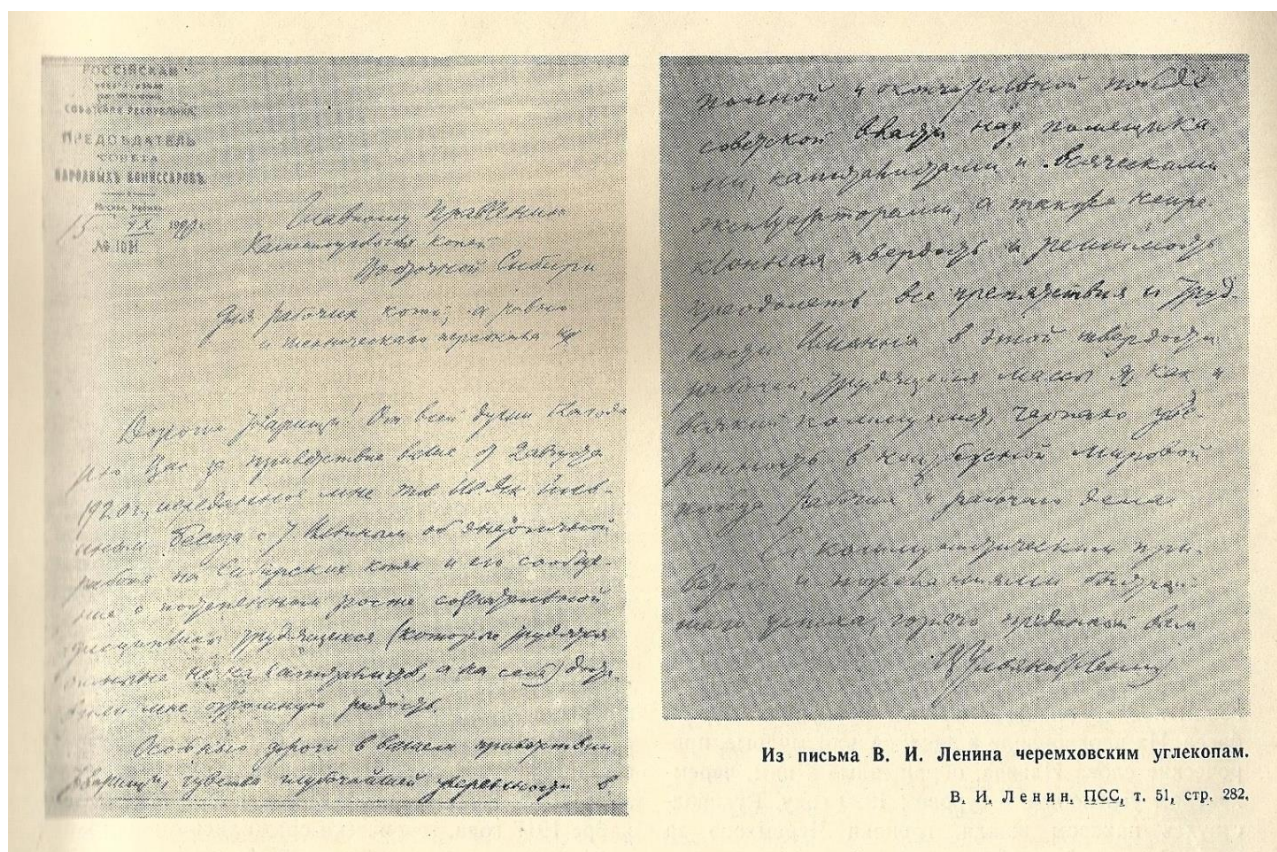 РОССІЙСКАЯ
СОВѢТСКАЯ РЕСПУБЛИКА
ПРЕДСѢДАТЕЛЬ
СОВѢТА
НАРОДНЫХЪ КОМИССАРОВЪ.
Москва, Кремль.
15/IX 1920 г.
№ 1031
Главному Правлению
Каменноугольных копей
Восточной Сибири
для рабочих копей, а равно
и технического персонала их
Дорогие товарищи! От всей души благода-
рю Вас за приветствие ваше от 2 августа
1920 г., переданное мне тов.
Беседа с т. об энергичной
работе на Сибирских копях и его сообще-
ние о постепенном росте сознательной
дисциплины трудящихся (которые трудятся
ныне не на капиталистов, а на себя) доста-
вили мне огромную радость.
Особенно дороги в вашем приветствии,
товарищи, чувства глубочайшей уверенности в
полной и окончательной победе
советской власти над помещика-
ми, капиталистами и всяческими
эксплуататорами, а также непре-
клонная твердость и решимость
преодолеть все препятствия и труд-
ности. Именно в этой твердости
рабочей, трудящейся массы я, как и
всякий коммунист, черпаю уве-
ренность в неизбежной мировой
победе рабочих и рабочего дела.
С коммунистическим при-
ветом и пожеланиями быстрей-
шего успеха, горячо преданный вам
В. Ульянов (Ленин)
Из письма В. И. Ленина черемховским углекопам.
В. И. Ленин, ПСС, т. 51, стр. 282.